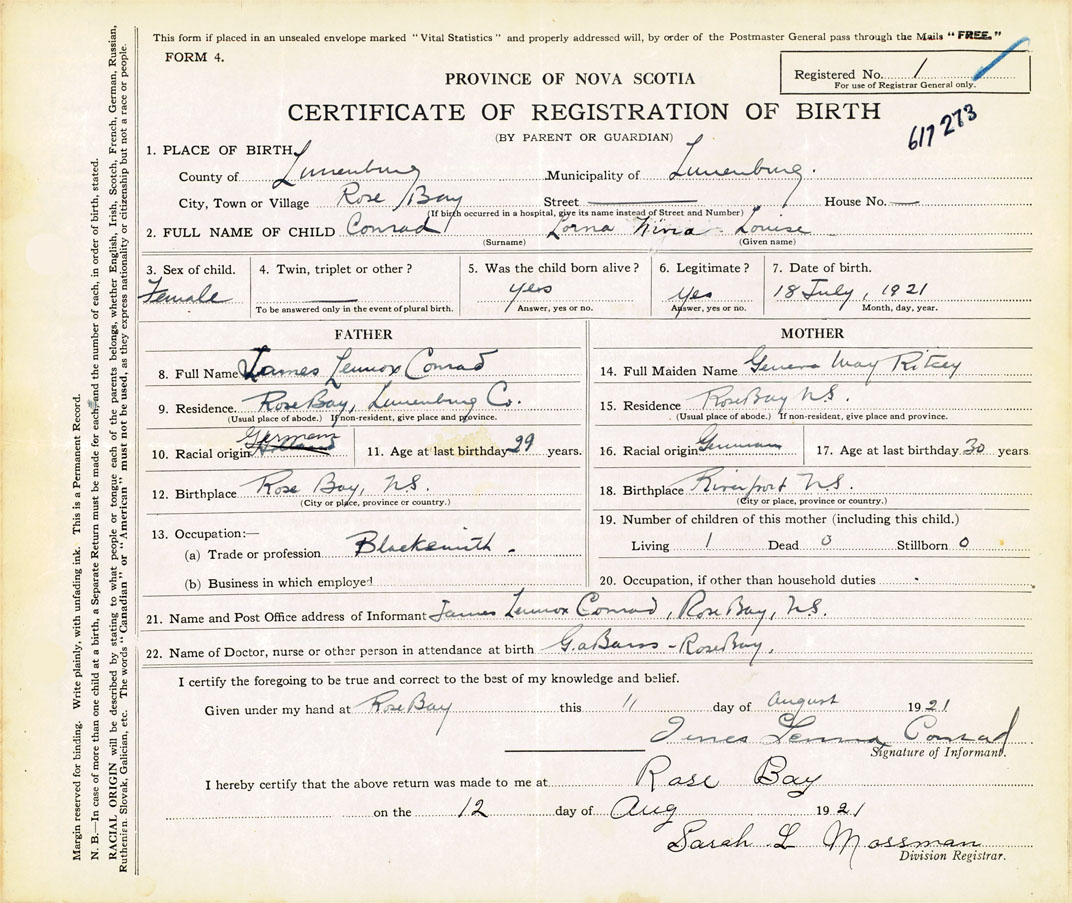 This form if placed in an unsealed envelope marked "Vital Statistics" and properly addressed will, by order of the Postmaster General pass through the Mails "FREE."
FORM 4.
Registered No. 1
For use of Registrar General only.
PROVINCE OF NOVA SCOTIA
CERTIFICATE OF REGISTRATION OF BIRTH
617273
(BY PARENT OR GUARDIAN)
1. PLACE OF BIRTH
County of Lunenburg Municipality of Lunenburg.
City, Town or Village Rose Bay Street House No.
(If birth occurred in a hospital, give its name instead of Street and Number)
2. FULL NAME OF CHILD Conrad Lorna Louise
(Surname) (Given name)
3. Sex of child. 4. Twin, triplet or other? 5. Was the child born alive? 6. Legitimate? 7. Date of birth.
Female yes yes 18 July, 1921
To be answered only in the event of plural birth. Answer, yes or no. Answer, yes or no. Month, day, year.
FATHER
8. Full Name James Lennox Conrad
9. Residence. Rose Bay, Lunenburg Co.
(Usual place of abode.) If non-resident, give place and province.
German
10. Racial origin Holland 11. Age at last birthday 29 years.
12. Birthplace Rose Bay, N.S.
(City or place, province or country.)
13. Occupation:—
(a) Trade or profession Blacksmith.
(b) Business in which employed
MOTHER
14. Full Maiden Name Geneva May Ritcey
15. Residence Rose Bay N.S.
(Usual place of abode.) If non-resident, give place and province.
16. Racial origin German 17. Age at last birthday 30 years
18. Birthplace Riverport N.S.
(City or place, province or country.)
19. Number of children of this mother (including this child.)
Living 1 Dead 0 Stillborn 0
20. Occupation, if other than household duties
21. Name and Post Office address of Informant James Lennox Conrad, Rose Bay, N.S.
22. Name of Doctor, nurse or other person in attendance at birth - Rose Bay.
I certify the foregoing to be true and correct to the best of my knowledge and belief.
Given under my hand at Rose Bay this 11 day of August 1921
James Lennox Conrad
Signature of Informant.
I hereby certify that the above return was made to me at Rose Bay
on the 12 day of Aug 1921
Sarah L Mossman
Division Registrar.
Margin reserved for binding. Write plainly, with unfading ink. This is a Permanent Record.
N. B.—In case of more than one child at a birth, a Separate Return must be made for each, and the number of each, in order of birth, stated.
RACIAL ORIGIN will be described by stating to what people or tongue each of the parents belongs, whether English, Irish, Scotch, French, German, Russian,
Ruthenian, Slovak, Galician, etc. The words "Canadian" or "American" must not be used, as they express nationality or citizenship but not a race or people.